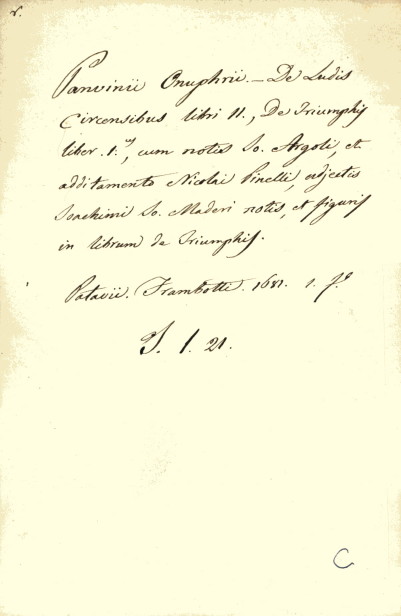 r.
Panvinii Onuphrii. — De Ludis
Circensibus libri II., De Triumphis
liber. 1.us, cum notis Jo. Argoli, et
additamento Nicolai Pinelli, adjectis
Joachimi Jo. Maderi notis, et figuris
in librum de Triumphis.
Patavii. Frambotti. 1681. 1. fo.
J. 1. 21.
C